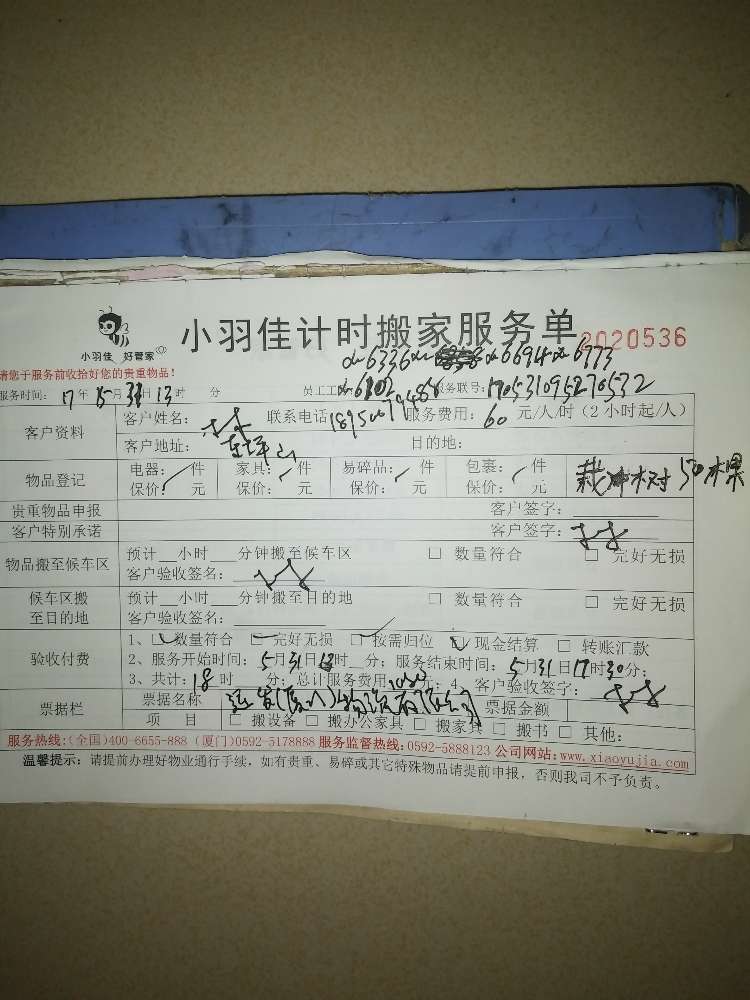 小羽佳 好管家
小羽佳计时搬家服务单 2020536
请您于服务前收拾好您的贵重物品!
6336 6694 6773
服务时间: 17年5月31日13时 分 员工工 服务联号: 1705310955270532
客户资料 客户姓名: 林 联系电话 服务费用: 60 元/人/时 (2小时起/人)
客户地址: 目的地:
物品登记 电器: 件 家具: 件 易碎品: 件 包裹: 件
保价: 元 保价: 元 保价: 元 保价: 元
贵重物品申报 客户签字:
客户特别承诺 客户签字:
物品搬至候车区 预计 小时 分钟搬至候车区 □ 数量符合 □ 完好无损
客户验收签名:
候车区搬至目的地 预计 小时 分钟搬至目的地 □ 数量符合 □ 完好无损
客户验收签名:
验收付费 1、□ 数量符合 □ 完好无损 □ 按需归位 □ 现金结算 □ 转账汇款
2、服务开始时间: 5月31日13时 分; 服务结束时间: 5月31日17时30分;
3、共计: 18 时 分; 总计服务费用: 元; 4、客户验收签字:
票据栏 票据名称 (厦门)物流有限公司 票据金额
项目 □ 搬设备 □ 搬办公家具 □ 搬家具 □ 搬书 □ 其他:
服务热线:(全国)400-6655-888 (厦门)0592-5178888 服务监督热线:0592-5888123 公司网站:www.xiaoyujia.com
温馨提示: 请提前办理好物业通行手续, 如有贵重、易碎或其它特殊物品请提前申报, 否则我司不予负责。